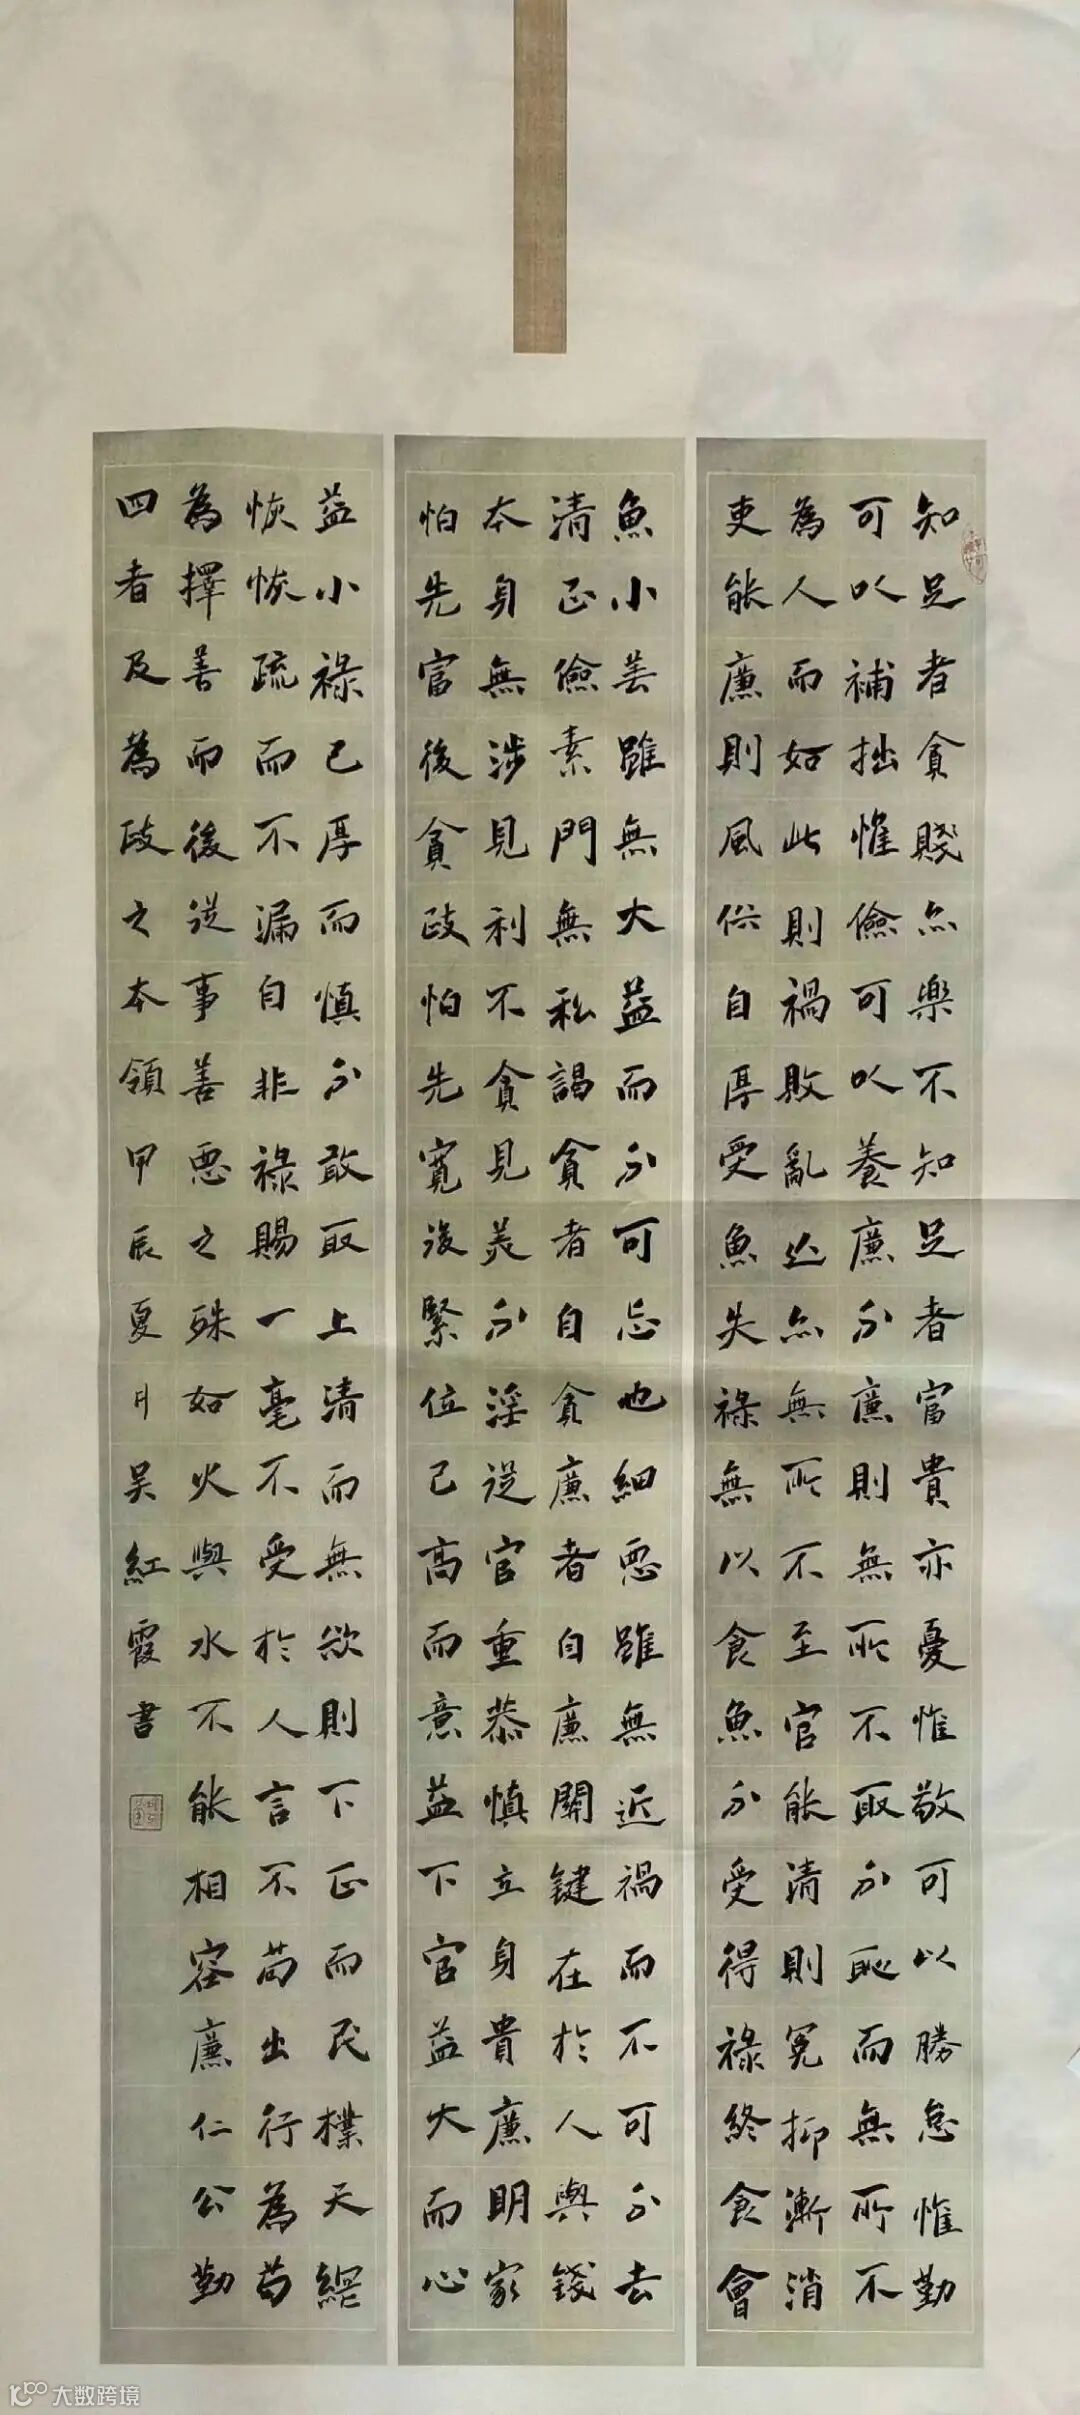 知足者貪賤亦樂不知足者富貴亦憂惟敬可以勝怠惟勤
可以補拙惟儉可以養廉不廉則無所不取不恥而無所不
為人而如此則禍敗亂亡亦無所不至官能清則冤抑漸消
吏能廉則風俗自厚受魚失祿無以食魚不受得祿終食會
魚小善雖無大益而不可忘也細惡雖無近禍而不可不去
清正儉素門無私謁貪者自貪廉者自廉關鍵在於人與錢
本身無涉見利不貪見美不淫從官重恭慎立身貴廉明家
怕先富後貪政怕先寬後緊位已高而意益下官益大而心
益小祿已厚而慎不敢取上清而無欲則下正而民樸天網
恢恢疏而不漏自非祿賜一毫不受於人言不苟出行為苟
為擇善而後從事善惡之殊如火與水不能相容廉仁公勤
四者及為政之本領甲辰夏月吳紅霞書
大数跨境